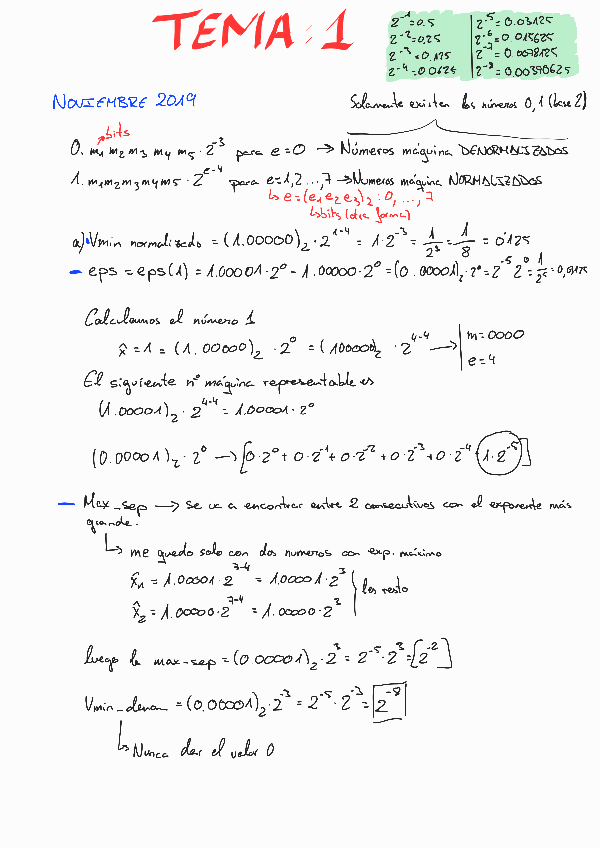 TEMA: 1
2^-1 = 0.5
2^-2 = 0.25
2^-3 = 0.125
2^-4 = 0.0625
2^-5 = 0.03125
2^-6 = 0.015625
2^-7 = 0.0078125
2^-8 = 0.00390625
NOVIEMBRE 2019
Solamente existen los números 0,1 (base 2)
bits
0. m1 m2 m3 m4 m5 · 2^-3 para e=0 → Números máquina DENORMALIZADOS
1. m1 m2 m3 m4 m5 · 2^e-4 para e=1,2...,7 → Numeros máquina NORMALIZADOS
↳ e=(e1 e2 e3)2 : 0, ..., 7
↳ bits (otra forma)
a) • Vmin normalizado = (1.00000)2 · 2^1-4 = 1·2^-3 = 1/2^3 = 1/8 = 0'125
- eps = eps(1) = 1.00001·2^0 - 1.00000·2^0 = (0.00001)2 · 2^0 = 2^-5 2^0 = 1/2^5 = 0,03125
Calculamos el número 1
x̂ = 1 = (1.00000)2 · 2^0 = (100000)2 · 2^4-4 → m=0000
e=4
El siguiente nº máquina representable es
(1.00001)2 · 2^4-4 = 1.00001·2^0
(0.00001)2 · 2^0 → [0·2^0 + 0·2^-1 + 0·2^-2 + 0·2^-3 + 0·2^-4 + 1·2^-5]
- Max_sep → se va a encontrar entre 2 consecutivos con el exponente más
grande.
↳ me quedo solo con dos numeros con exp. máximo
x̂1 = 1.00001·2^7-4 = 1.00001·2^3
x̂2 = 1.00000·2^7-4 = 1.00000·2^3
los resto
luego la max-sep = (0.00001)2 · 2^3 = 2^-5 · 2^3 = [2^-2]
Vmin_denom = (0.00001)2 · 2^-3 = 2^-5 · 2^-3 = 2^-8
↳ Nunca dar el valor 0